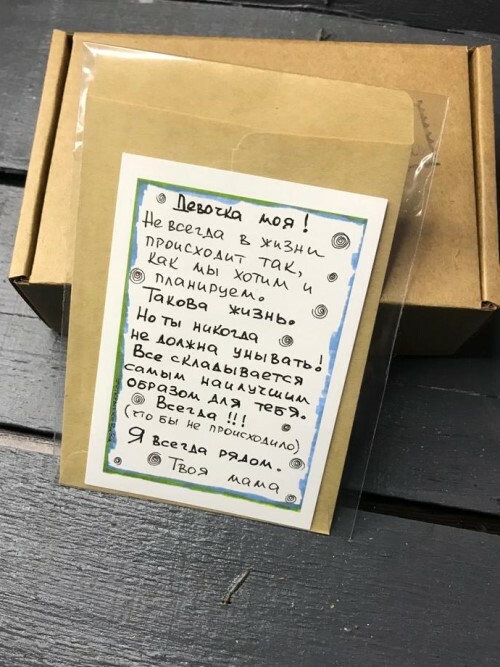 Девочка моя!
Не всегда в жизни
происходит так,
как мы хотим и
планируем.
Такова жизнь.
Но ты никогда
не должна унывать!
Все складывается
самым наилучшим
образом для тебя.
Всегда!!!
(что бы не происходило)
Я всегда рядом.
Твоя мама